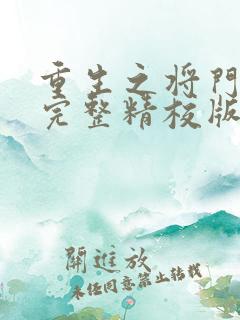 重生之将門
完整精校版
開進放
未任同意禁止转载